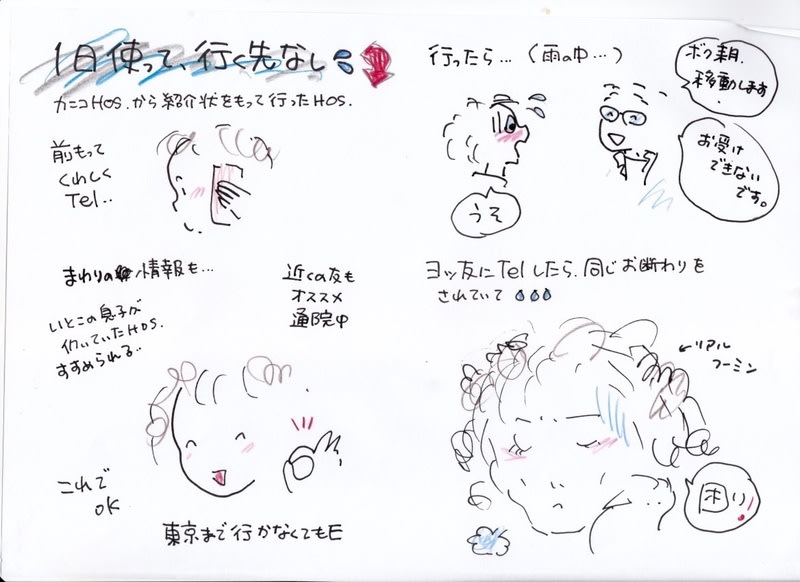 1日使って、行く先なし
カニコHOS.から紹介状をもって行ったHOS.
前もって
くわしく
Tel..
まわりの情報も…
近くの友も
オススメ
通院中
いとこの息子が
働いていたHOS.
すすめられる..
これで
OK
東京まで行かなくてもE
行ったら…(雨の中…)
ボク来月.
移動します
お受け
できない
です。
うそ
ヨッ友にTelしたら、同じお断わりを
されていて
←リアル
フーミン
困り!